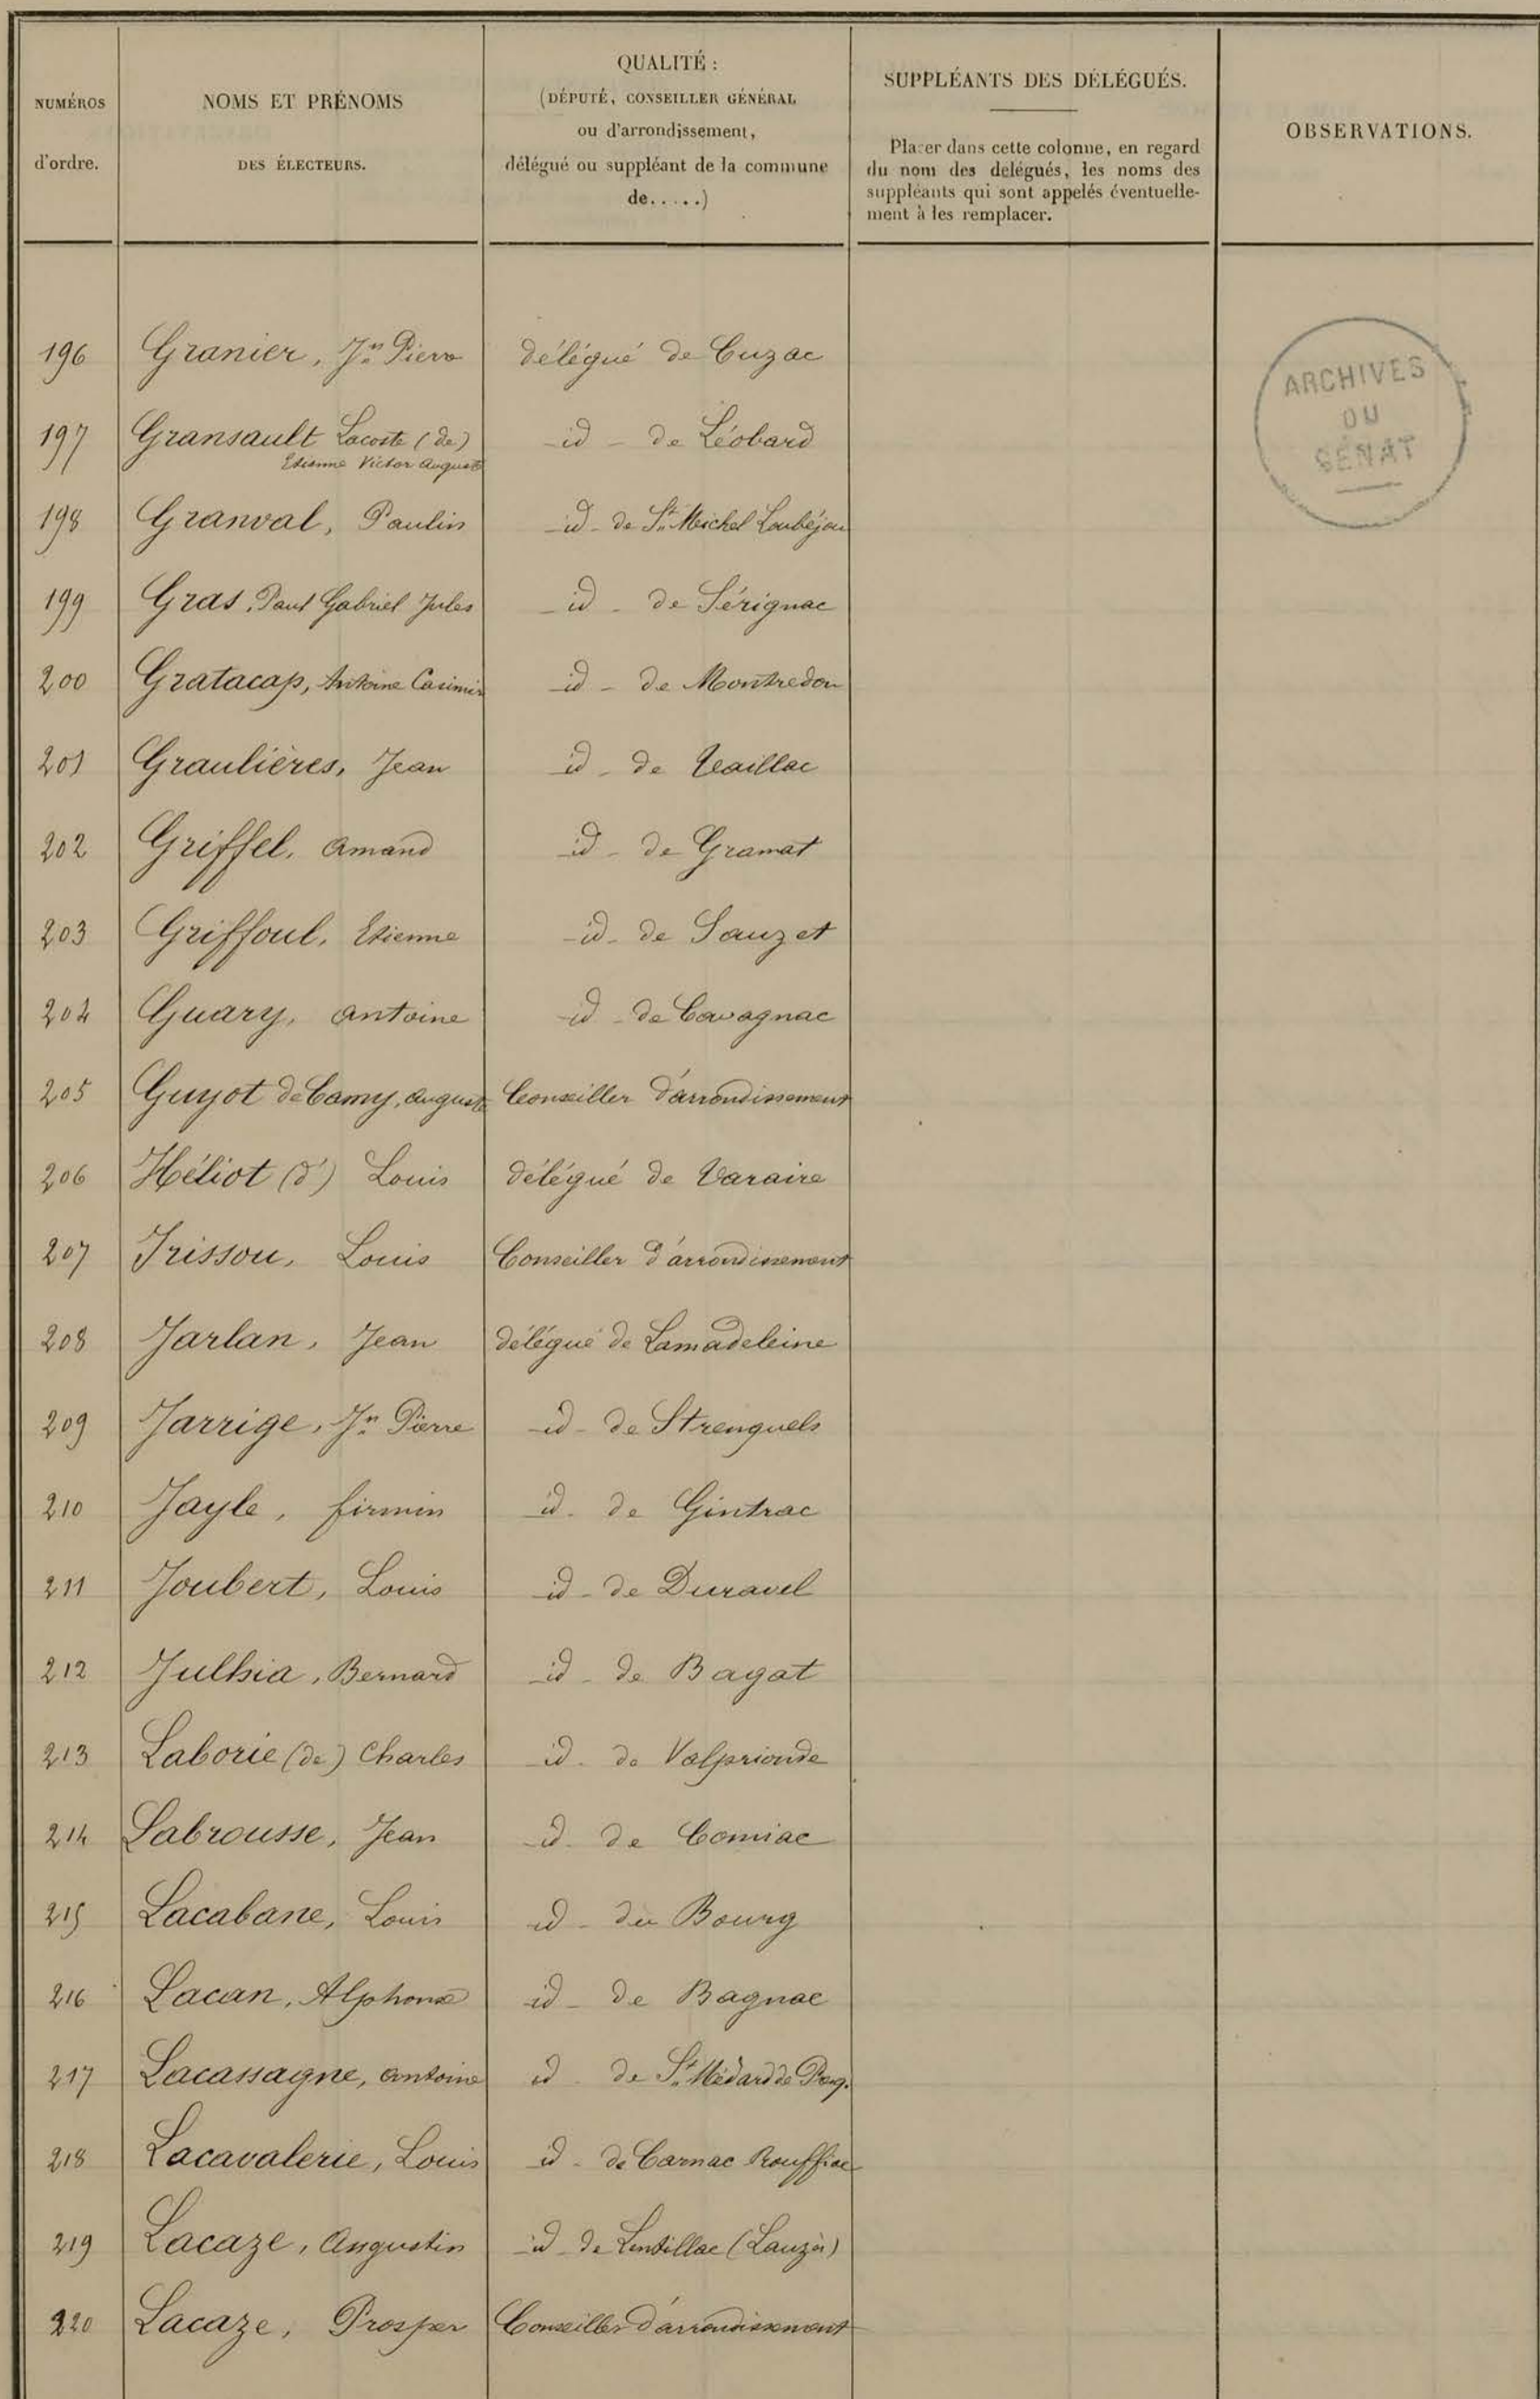 NUMÉROS
d'ordre.
NOMS ET PRÉNOMS
DES ÉLECTEURS.
QUALITÉ :
(DÉPUTÉ, CONSEILLER GÉNÉRAL
ou d'arrondissement,
délégué ou suppléant de la commune
de.....)
SUPPLÉANTS DES DÉLÉGUÉS.
Placer dans cette colonne, en regard
du nom des délégués, les noms des
suppléants qui sont appelés éventuelle-
ment à les remplacer.
OBSERVATIONS.
ARCHIVES
DU
SÉNAT
196 Granier, Jn Pierre délégué de Cuzac
197 Gransault Lacoste (de) id - de Léobard
Etienne Victor Auguste
198 Granval, Paulin id - de St Michel Loubéjou
199 Gras, Paul Gabriel Jules id - de Sérignac
200 Gratacap, Antoine Casimir id - de Montredon
201 Graulières, Jean id - de Vaillac
202 Griffel, Amand id - de Gramat
203 Griffoul, Etienne id - de Sauzet
204 Guary, Antoine id - de Cavagnac
205 Guyot de Camy, Auguste Conseiller d'arrondissement
206 Héliot (d') Louis délégué de Varaire
207 Irissou, Louis Conseiller d'arrondissement
208 Jarlan, Jean délégué de Lamadeleine
209 Jarrige, Jn Pierre id - de Strenquels
210 Jayle, firmin id - de Gintrac
211 Joubert, Louis id - de Duravel
212 Julhia, Bernard id - de Bagat
213 Laborie (de) Charles id - de Valprionde
214 Labrousse, Jean id - de Comiac
215 Lacabane, Louis id - du Bourg
216 Lacan, Alphonse id - de Bagnac
217 Lacassagne, Antoine id - de St Médard de Presq.
218 Lacavalerie, Louis id - de Carnac Rouffiac
219 Lacaze, Augustin id - de Lentillac (Lauzès)
220 Lacaze, Prosper Conseiller d'arrondissement